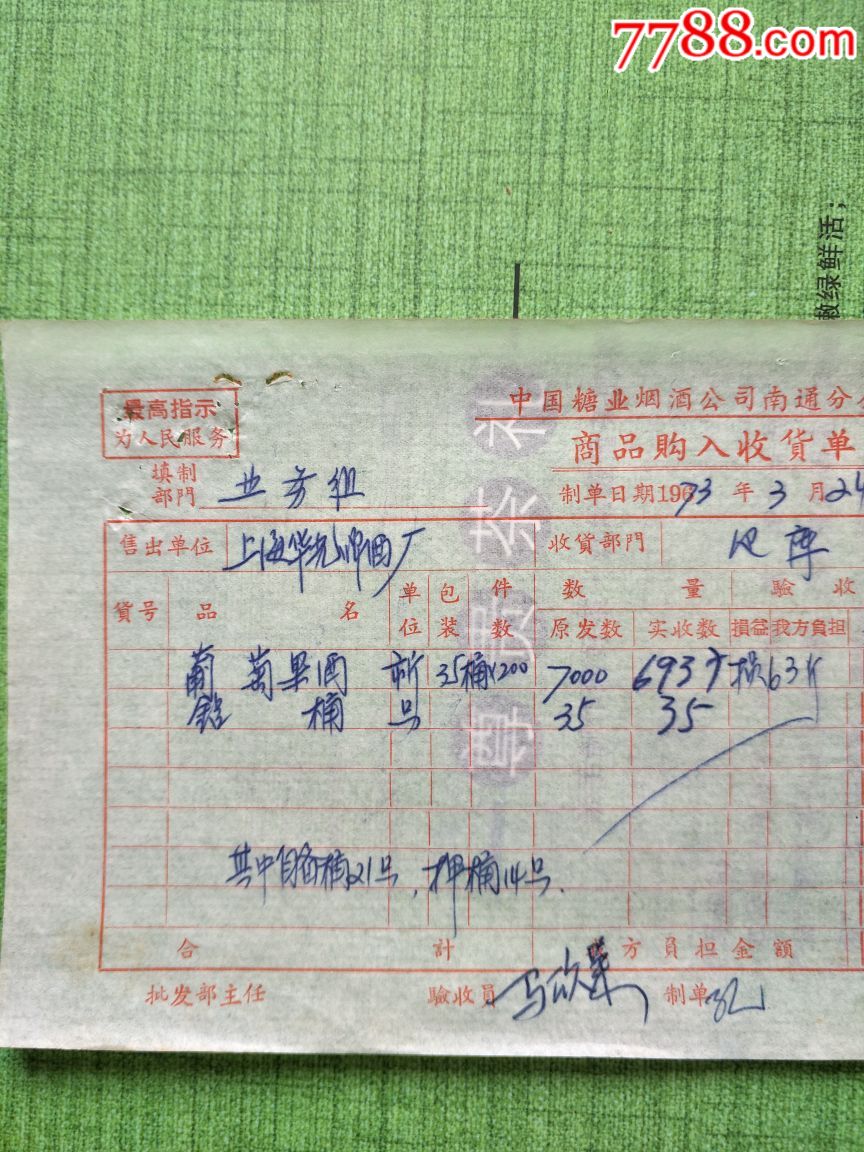 7788.com
嫩绿鲜活；
最高指示
为人民服务
中国糖业烟酒公司南通分
商品购入收货单
填制部門 业务组
制单日期1973年3月24
售出单位 上海华光啤酒厂
收貨部門
貨号 品名 单位 包装 件数 数量 驗收
原发数 实收数 損益 我方負担
葡萄果酒 市斤 35桶×200 7000 6937 损63斤
铝桶 只 35 35
其中自备桶21只，押桶14只.
合計 方負担金額
批发部主任 驗收員 制单